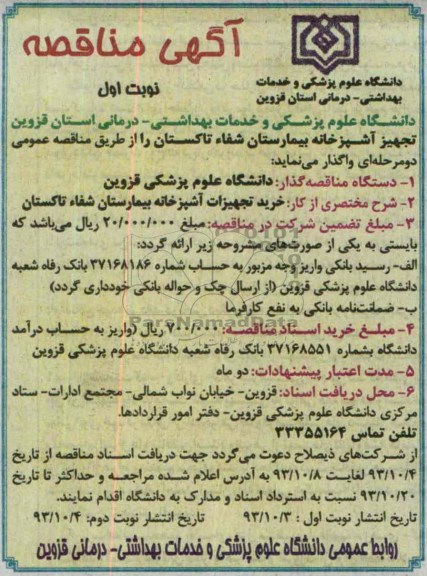 آگهی مناقصه
نوبت اول
دانشگاه علوم پزشکی و خدمات
بهداشتی- درمانی استان قزوین
دانشگاه علوم پزشکی و خدمات بهداشتی- درمانی استان قزوین
تجهیز آشپزخانه بیمارستان شفاء تاکستان را از طریق مناقصه عمومی
دومرحله‌ای واگذار می‌نماید:
۱- دستگاه مناقصه‌گذار: دانشگاه علوم پزشکی قزوین
۲- شرح مختصری از کار: خرید تجهیزات آشپزخانه بیمارستان شفاء تاکستان
۳- مبلغ تضمین شرکت در مناقصه: مبلغ ۲۰/۰۰۰/۰۰۰ ریال می‌باشد که
بایستی به یکی از صورت‌های مشروحه زیر ارائه گردد:
الف- رسید بانکی واریز وجه مزبور به حساب شماره ۳۷۱۶۸۱۸۶ بانک رفاه شعبه
دانشگاه علوم پزشکی قزوین (از ارسال چک و حواله بانکی خودداری گردد)
ب- ضمانت‌نامه بانکی به نفع کارفرما
۴- مبلغ خرید اسناد مناقصه: ۷۰۰/۰۰۰ ریال (واریز به حساب درآمد
دانشگاه بشماره ۳۷۱۶۸۵۵۱ بانک رفاه شعبه دانشگاه علوم پزشکی قزوین
۵- مدت اعتبار پیشنهادات: دو ماه
۶- محل دریافت اسناد: قزوین- خیابان نواب شمالی- مجتمع ادارات- ستاد
مرکزی دانشگاه علوم پزشکی قزوین- دفتر امور قراردادها.
تلفن تماس ۳۳۳۵۵۱۶۴
از شرکت‌های ذیصلاح دعوت می‌گردد جهت دریافت اسناد مناقصه از تاریخ
۹۳/۱۰/۴ لغایت ۹۳/۱۰/۸ به آدرس اعلام شده مراجعه و حداکثر تا تاریخ
۹۳/۱۰/۲۰ نسبت به استرداد اسناد و مدارک به دانشگاه اقدام نمایند.
تاریخ انتشار نوبت اول : ۹۳/۱۰/۳ تاریخ انتشار نوبت دوم: ۹۳/۱۰/۴
روابط عمومی دانشگاه علوم پزشکی و خدمات بهداشتی- درمانی قزوین